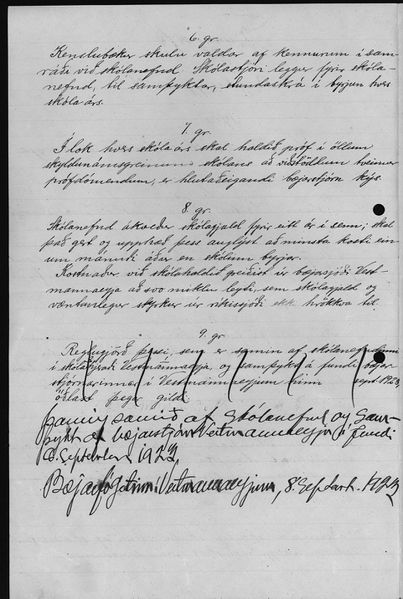 6. gr.
Kenslubækur skulu valdar af kennurum í sam-
ráði við skólanefnd. Skólastjóri leggur fyrir skóla-
nefnd, til samþyktar, stundaskrá í byrjun hvers
skólaárs.
7. gr.
Í lok hvers skólaárs skal haldið próf í öllum
skyldunámsgreinum skólans að viðstöddum tveimur
prófdómendum, er hlutaðeigandi bæjarstjórn kýs.
8. gr.
Skólanefnd ákveður skólagjald fyrir eitt ár í senn; skal
það gert og upphæð þess auglýst að minsta kosti ein-
um mánuði áður en skólinn byrjar.
Kostnaður við skólahaldið greiðist úr bæjarsjóði Vest-
mannaeyja að svo miklu leyti, sem skólagjald og
væntanlegur styrkur úr ríkissjóði ekki hrökkva til.
9. gr.
Reglugjörð þessi, sem er samin af skólanefndinni
í skólahjeraði Vestmannaeyja, og samþykt á fundi bæjar-
stjórnarinnar í Vestmannaeyjum hinn sept 1923,
öðlast þegar gildi.
Þannig samið af skólanefnd og sam-
þykt af bæjarstjórn Vestmannaeyja á fundi
September 1923.
Bæjarfógetinn í Vestmannaeyjum, 8. Septbr. 1923